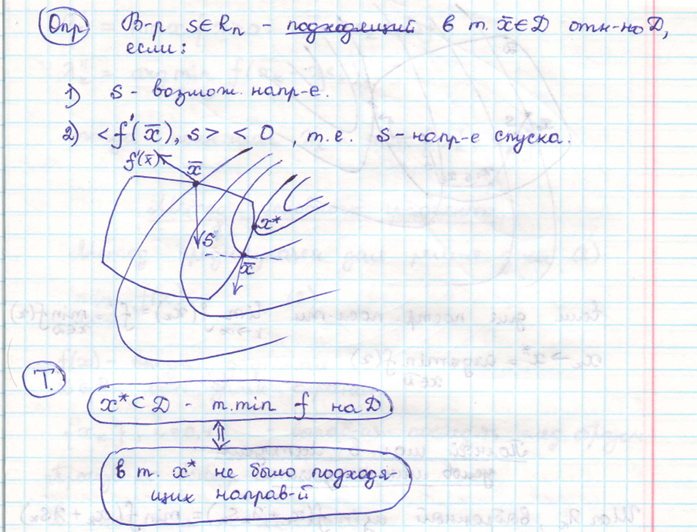 Опр В-р s∈Rn - подходящий в т. x̄∈D отн-но D,
если:
1) s - возмож. напр-е.
2) <f'(x̄), s> < 0, т.е. s - напр-е спуска.
f'(x̄) x̄
x*
s
x̄
Т.
x* ⊂ D - т. min f на D
⇕
в т. x* не было подходя-
щих направ-й